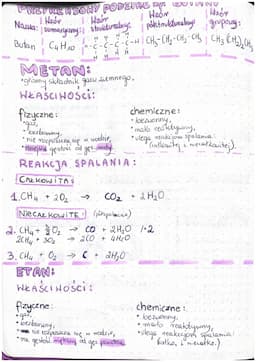 Nazwa: | Wzór sumaryczny: | Wzór strukturalny: | Wzór półstrukturalny: | Wzór grupowy:
Butan | C4H10 | CH3-CH2-CH2-CH3 | CH3(CH2)2CH3
METAN:
•główny składnik gazu ziemnego.
WŁAŚCIWOŚCI:
fizyczne:
•gaz,
•bezbarwny,
•nie rozpuszcza się w wodzie,
gęstość od
chemiczne:
•bezwonny,
•mało reaktywny,
•ulega reakcjom spalania
(całkowite i niecałkowite).
REAKCJA SPALANIA:
CAŁKOWITA:
1. CH4 + 2O2 → CO2 + 2H2O
NIECAŁKOWITE:
2. CH4 + 3/2 O2 → CO + 2H2O /·2
2CH4 + 3O2 → 2CO + 4H2O
3. CH4 + O2 → C + 2H2O
ETAN:
WŁAŚCIWOŚCI:
fizyczne:
•gaz,
•bezbarwny,
•nie rozpuszcza się w wodzie,
•ma gęstość od
chemiczne:
•bezwonny,
•mało reaktywny,
•ulega reakcjom spalania